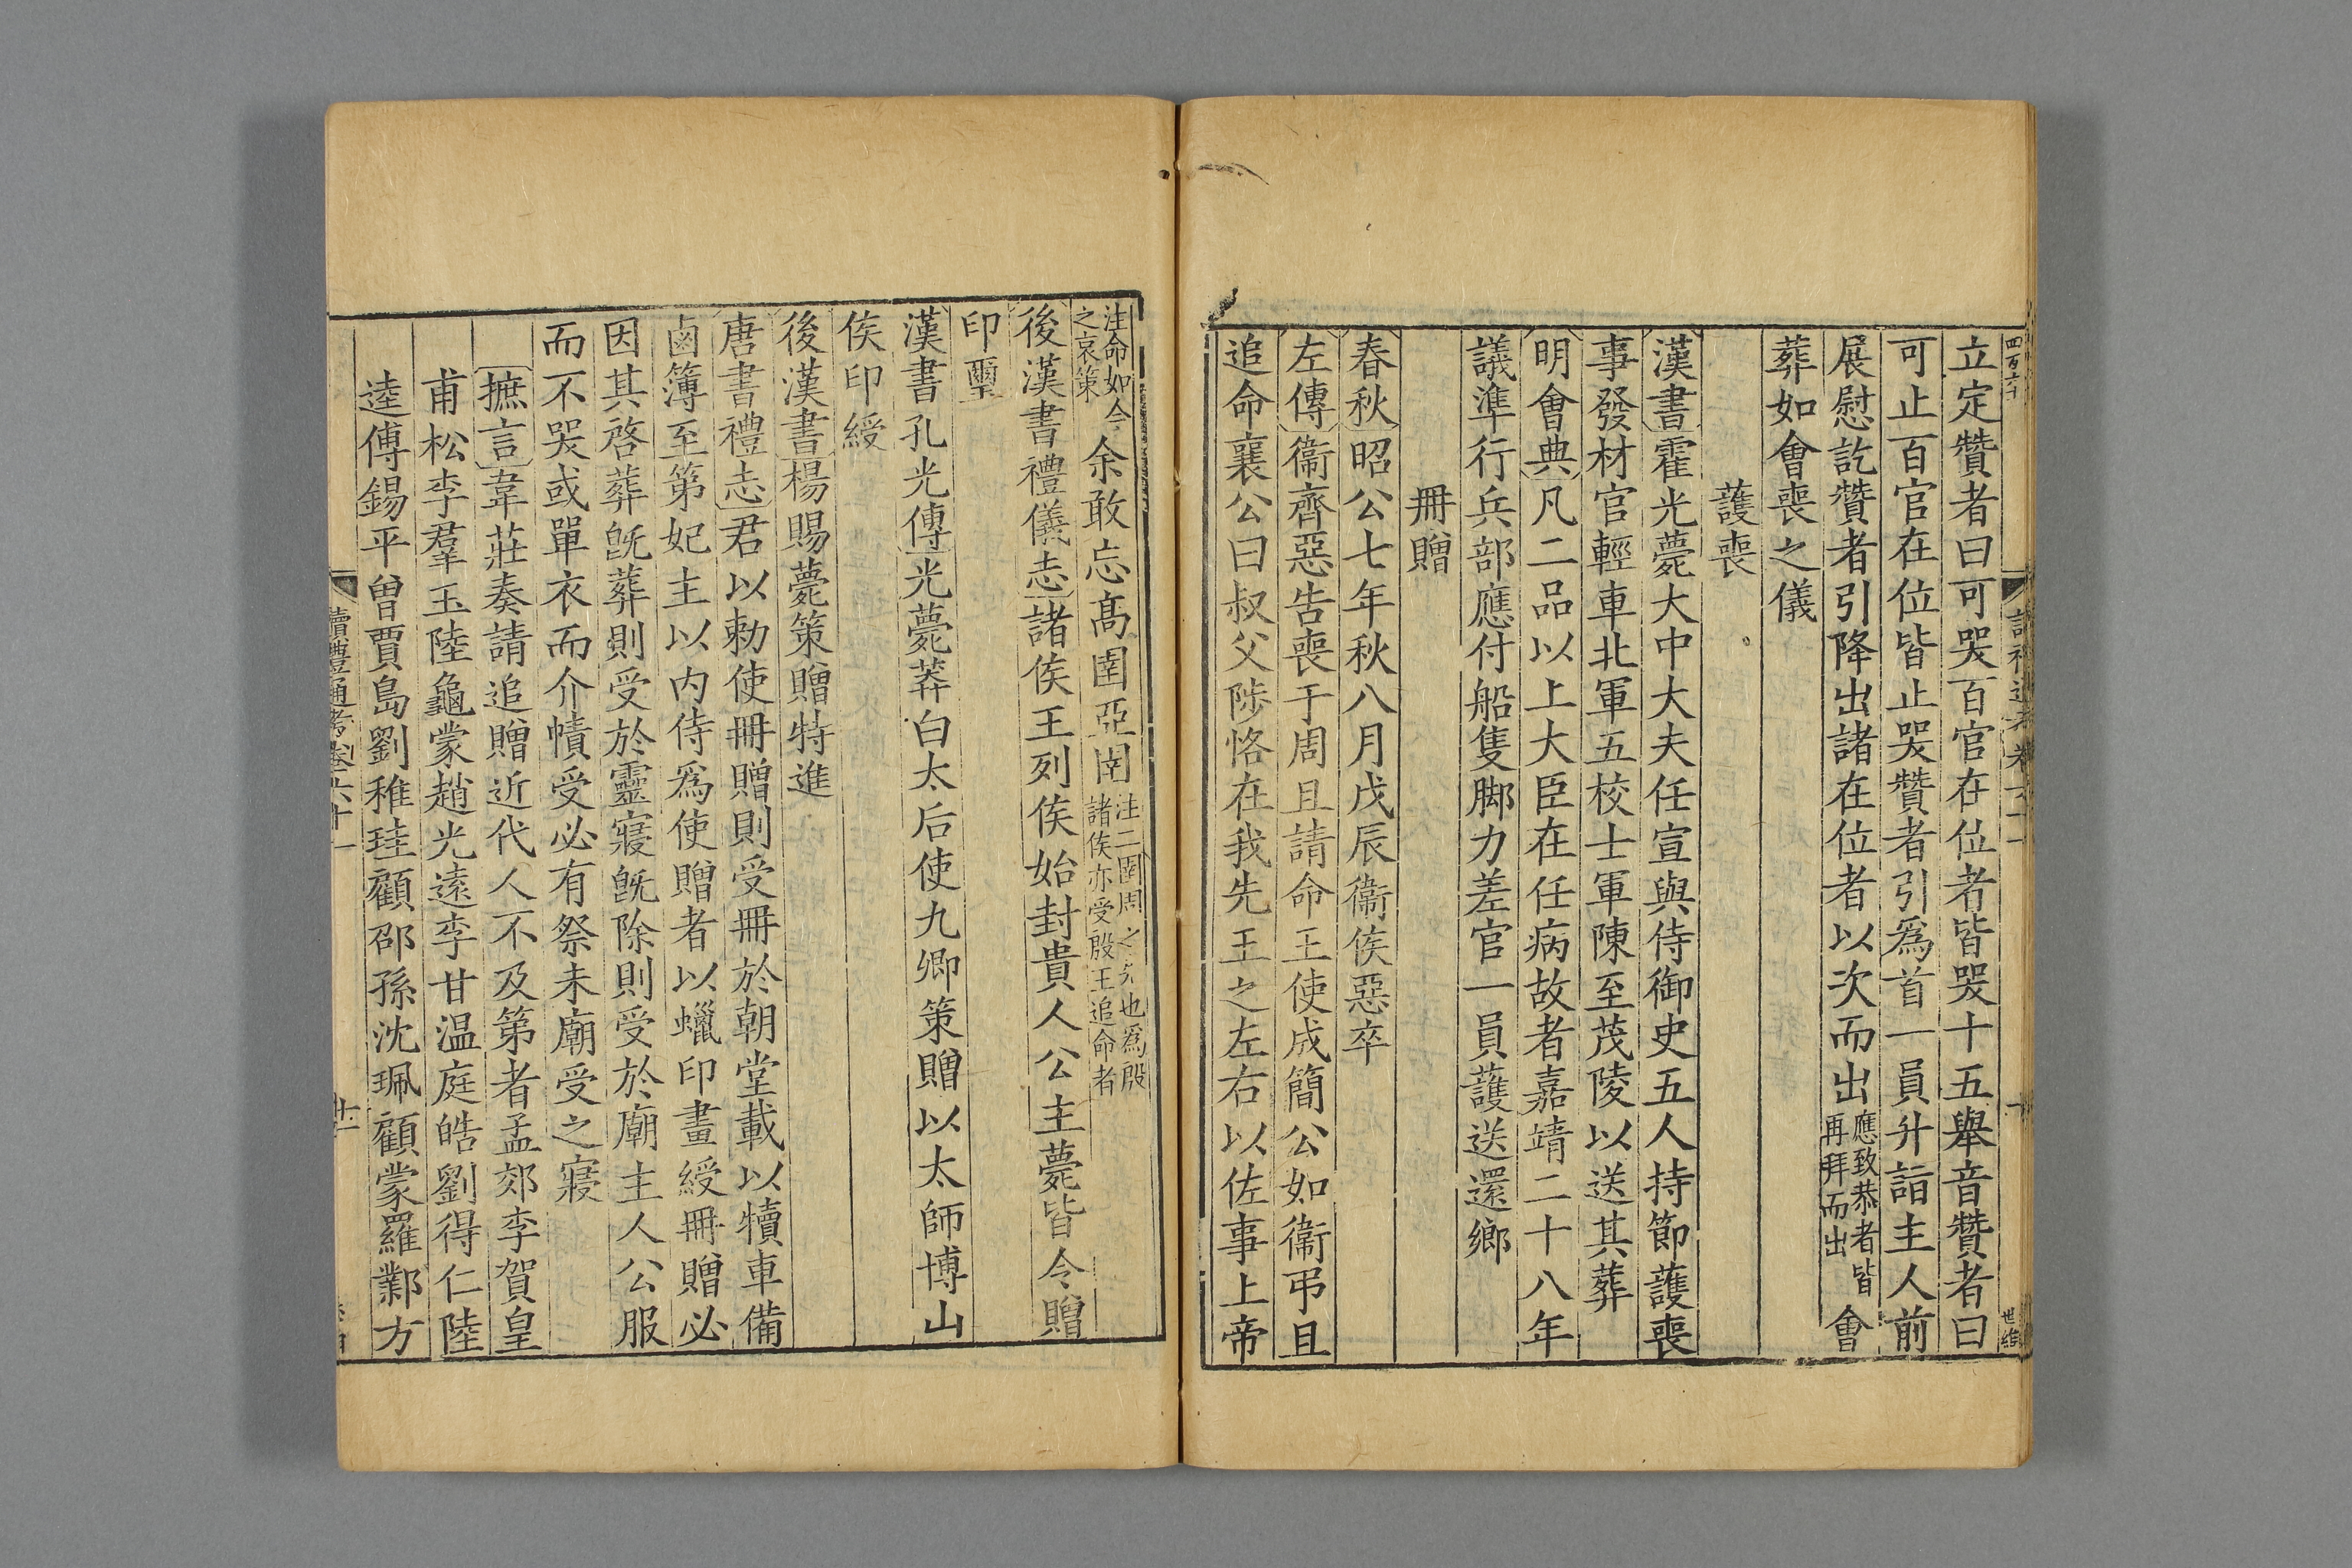 四百六十
立定贊者曰可哭百官在位者皆哭十五舉音贊者曰
可止百官在位皆止哭贊者引爲首一員升詣主人前
展慰訖贊者引降出諸在位者以次而出應致恭者皆再拜而出會
葬如會喪之儀
護喪
漢書霍光薨大中大夫任宣與侍御史五人持節護喪
事發材官輕車北軍五校士軍陳至茂陵以送其葬
明會典凡二品以上大臣在任病故者嘉靖二十八年
議準行兵部應付船隻脚力差官一員護送還鄉
冊贈
春秋昭公七年秋八月戊辰衞侯惡卒
左傳衞齊惡告喪于周且請命王使成簡公如衞弔且
追命襄公曰叔父陟恪在我先王之左右以佐事上帝
注命如今之哀策余敢忘高圉亞圉注二圉周之先也爲殷諸侯亦受殷王追命者
後漢書禮儀志諸侯王列侯始封貴人公主薨皆令贈
印璽
漢書孔光傳光薨莽白太后使九卿策贈以太師博山
侯印綬
後漢書楊賜薨策贈特進
唐書禮志君以勅使冊贈則受冊於朝堂載以犢車備
鹵簿至第妃主以内侍爲使贈者以蠟印畫綬冊贈必
因其啓葬旣葬則受於靈寢旣除則受於廟主人公服
而不哭或單衣而介幘受必有祭未廟受之寢
摭言韋莊奏請追贈近代人不及第者孟郊李賀皇
甫松李羣玉陸龜蒙趙光遠李甘温庭皓劉得仁陸
逵傅錫平曾賈島劉稚珪顧邵孫沈珮顧蒙羅鄴方
讀禮通考卷六十一